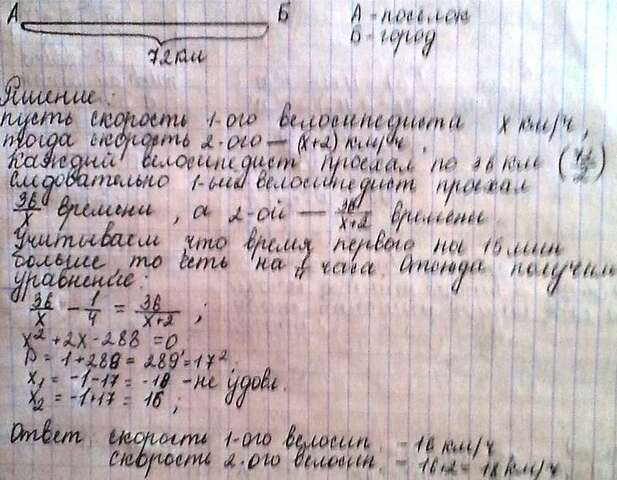 А Б А - посёлок
72 км Б - город
Решение:
пусть скорость 1-ого велосипедиста х км/ч,
тогда скорость 2-ого — (х+2) км/ч.
Каждый велосипедист проехал по 36 км (72/2)
следовательно 1-ый велосипедист проехал
36/х времени, а 2-ой — 36/х+2 времени.
Учитываем что время первого на 15 мин
больше то есть на 1/4 часа. Отсюда получим
уравнение:
36/х - 1/4 = 36/х+2 ;
х² + 2х - 288 = 0
D = 1 + 288 = 289 = 17²
х₁ = -1-17 = -18 - не удовл.
х₂ = -1+17 = 16 ;
Ответ: скорость 1-ого велосип. = 16 км/ч
скорость 2-ого велосип. = 16+2 = 18 км/ч.